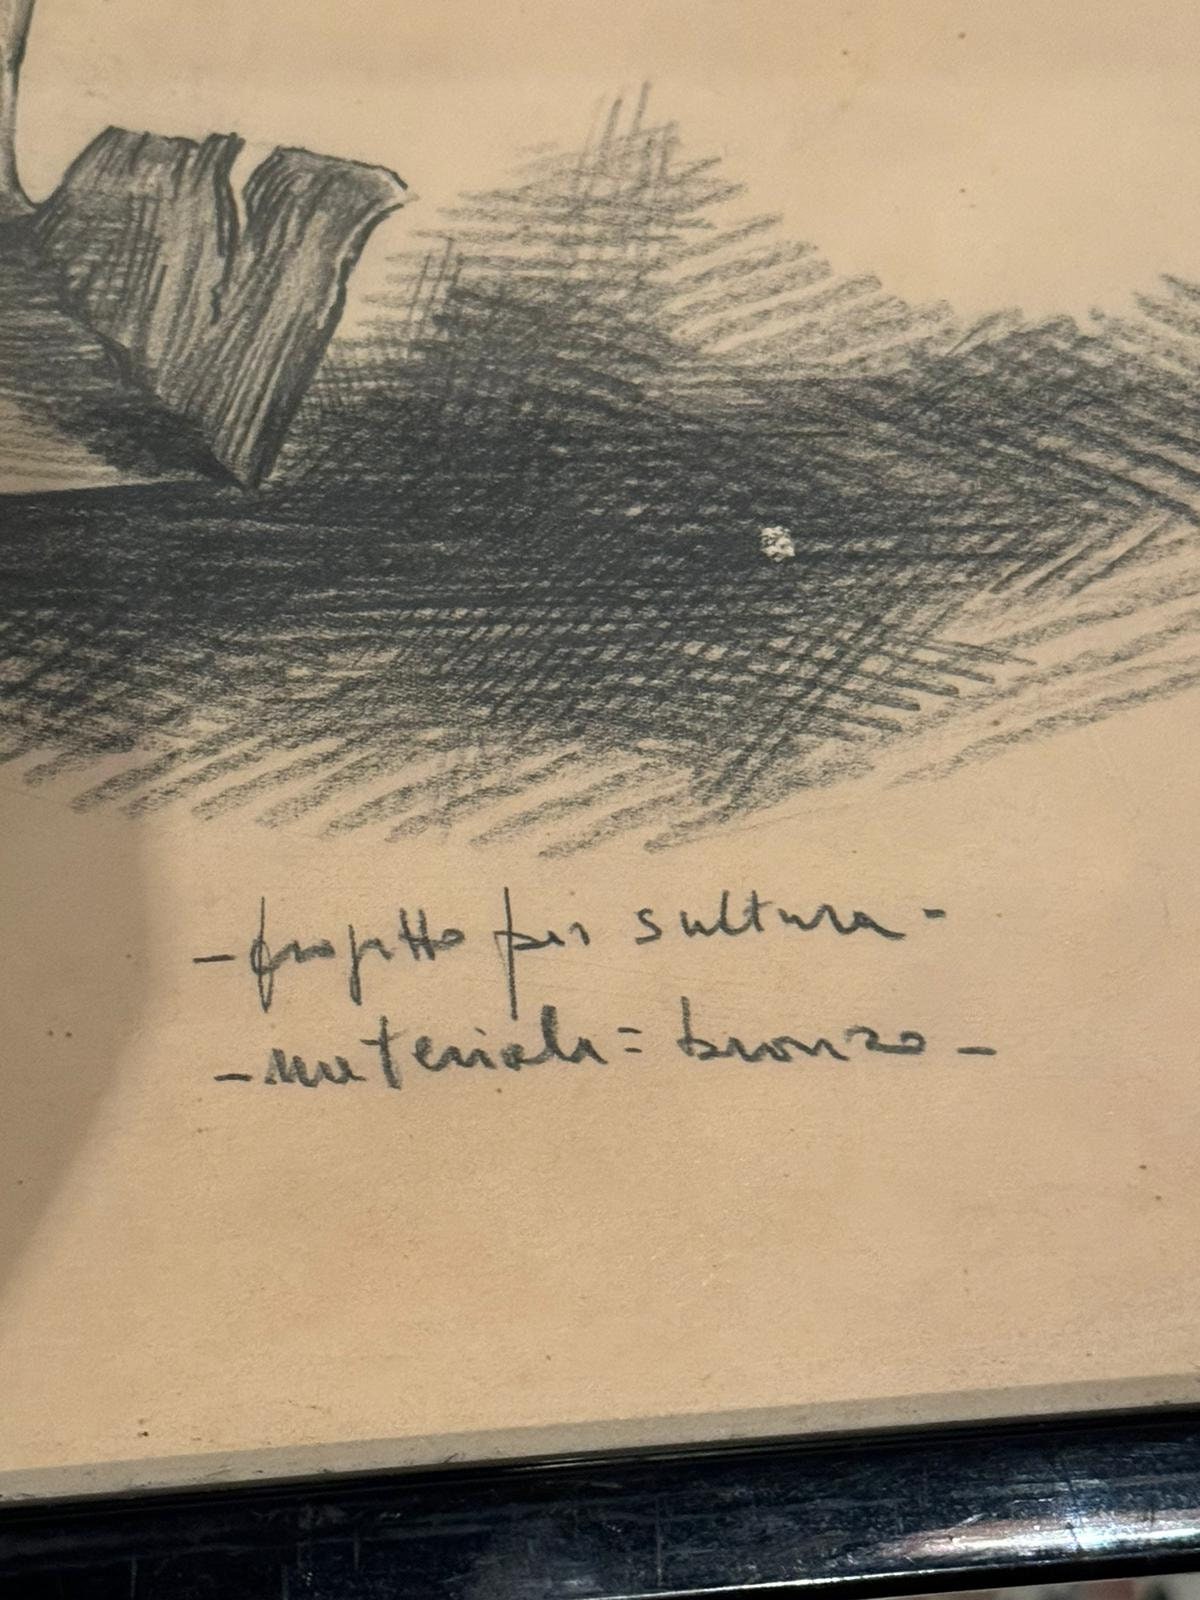 - progetto per scultura -
- materiale = bronzo -